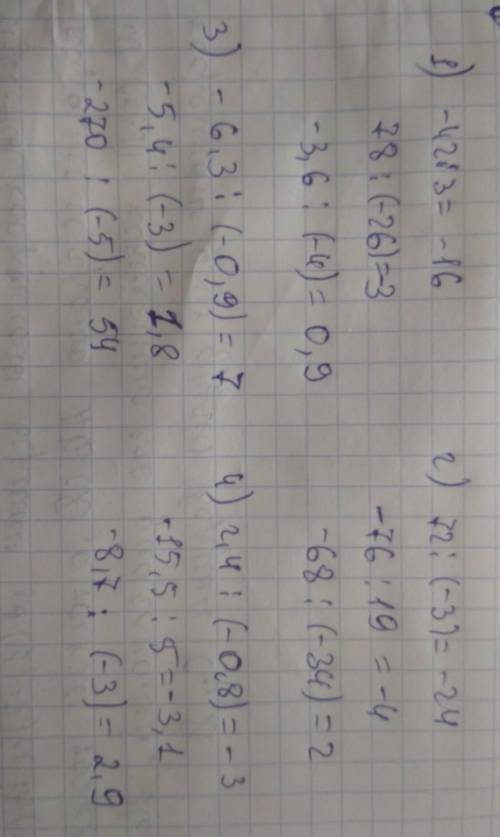 1) -42:3 = -16
78 : (-26)=-3
-3,6 : (-4) = 0,9
2) 72: (-3)= -24
-76 : 19 = -4
-68 : (-34) = 2
3) - 6,3 : (-0,9) = 7
-5,4 : (-3) = 1,8
-270 : (-5) = 54
4) 2,4 : (-0,8) = - 3
-15,5 : 5 = -3,1
-8,7 : (-3) = 2,9